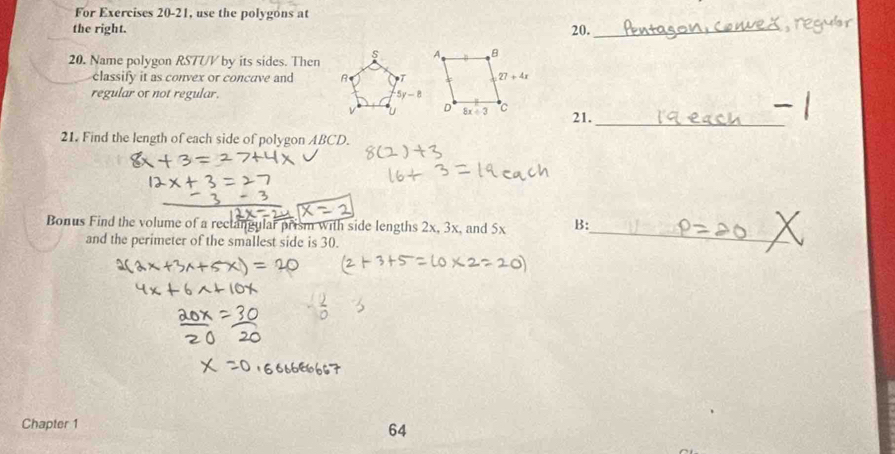 For Exercises 20-21, use the polygons at
the right.
20. Pentagon, convex, regular
20. Name polygon RSTUV by its sides. Then
classify it as convex or concave and
regular or not regular.
S
R T
5y − 8
V U
A B
27 + 4x
D 8x + 3 C
21. 19 each −1
21. Find the length of each side of polygon ABCD.
8x + 3 = 27+4x ✓ 8(2)+3
12x + 3 = 27 16+ 3 = 19 each
− 3 − 3
12x = 24 x = 2
Bonus Find the volume of a rectangular prism with side lengths 2x, 3x, and 5x
and the perimeter of the smallest side is 30.
B: P = 20 X
2(2x+3x+5x) = 20 (2+3+5=10×2=20)
4x + 6x + 10x
20x = 30
20 20
x = 0.666666667
Chapter 1
64